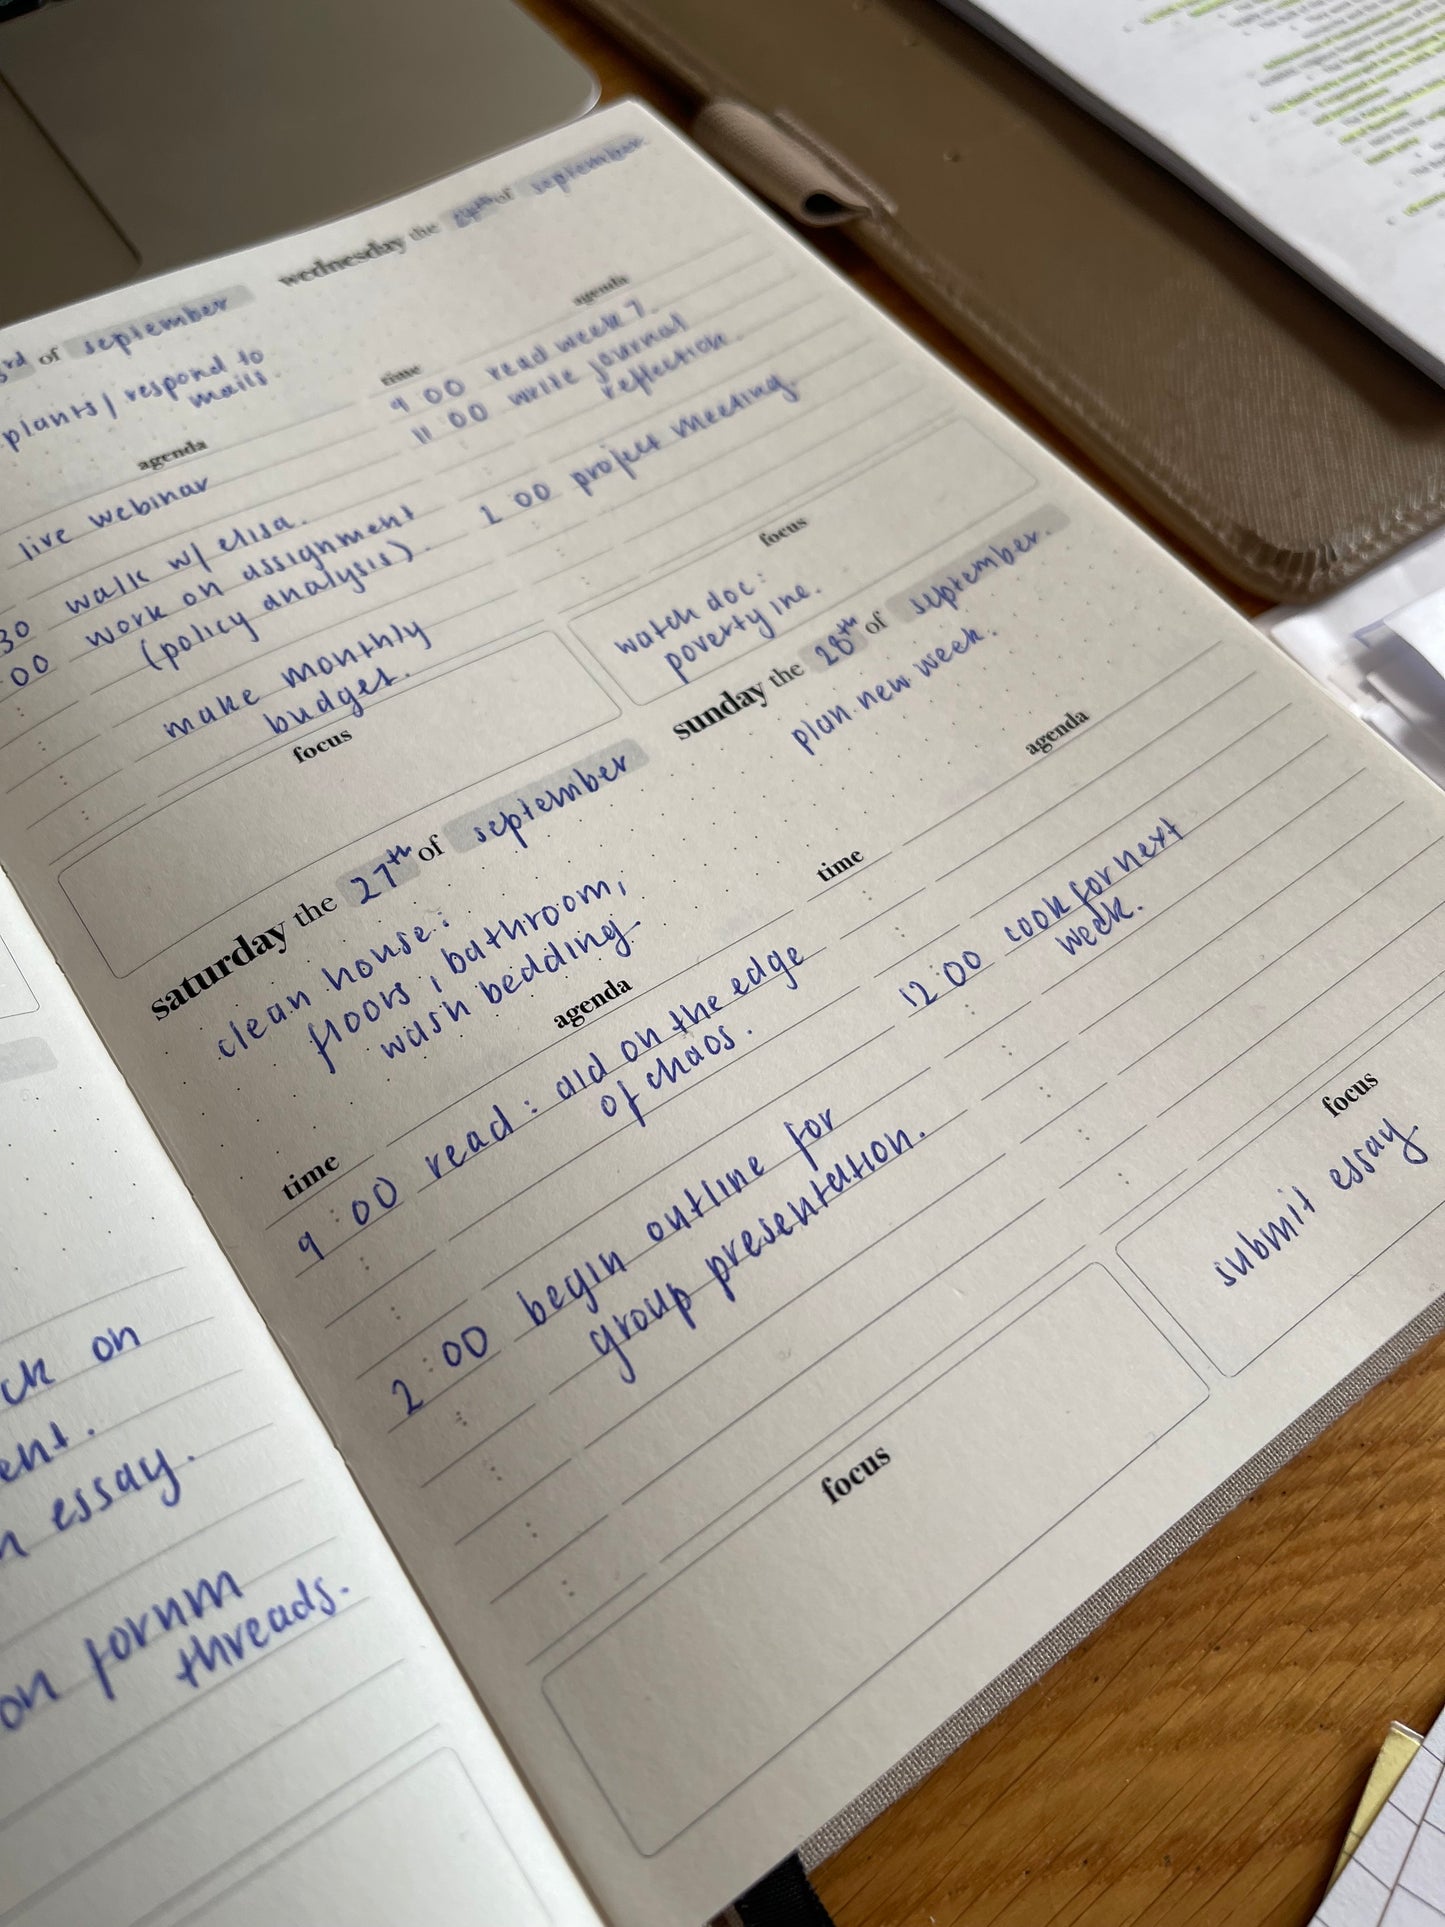 wednesday the 24th of september
agenda
time
9 00 read week 7.
11 00 write journal
reflection.
1 00 project meeting.
focus
watch doc:
poverty inc.
3rd of september
plants / respond to
mails
agenda
live webinar
30 walk w/ elisa.
00 work on assignment
(policy analysis).
make monthly
budget.
focus
saturday the 27th of september
clean house:
floors, bathroom,
wash bedding.
agenda
time
9:00 read: aid on the edge
of chaos.
2:00 begin outline for
group presentation.
focus
sunday the 28th of september.
plan new week.
agenda
time
12:00 cook for next
week.
focus
submit essay.
ck on
ent.
essay.
on forum
threads.